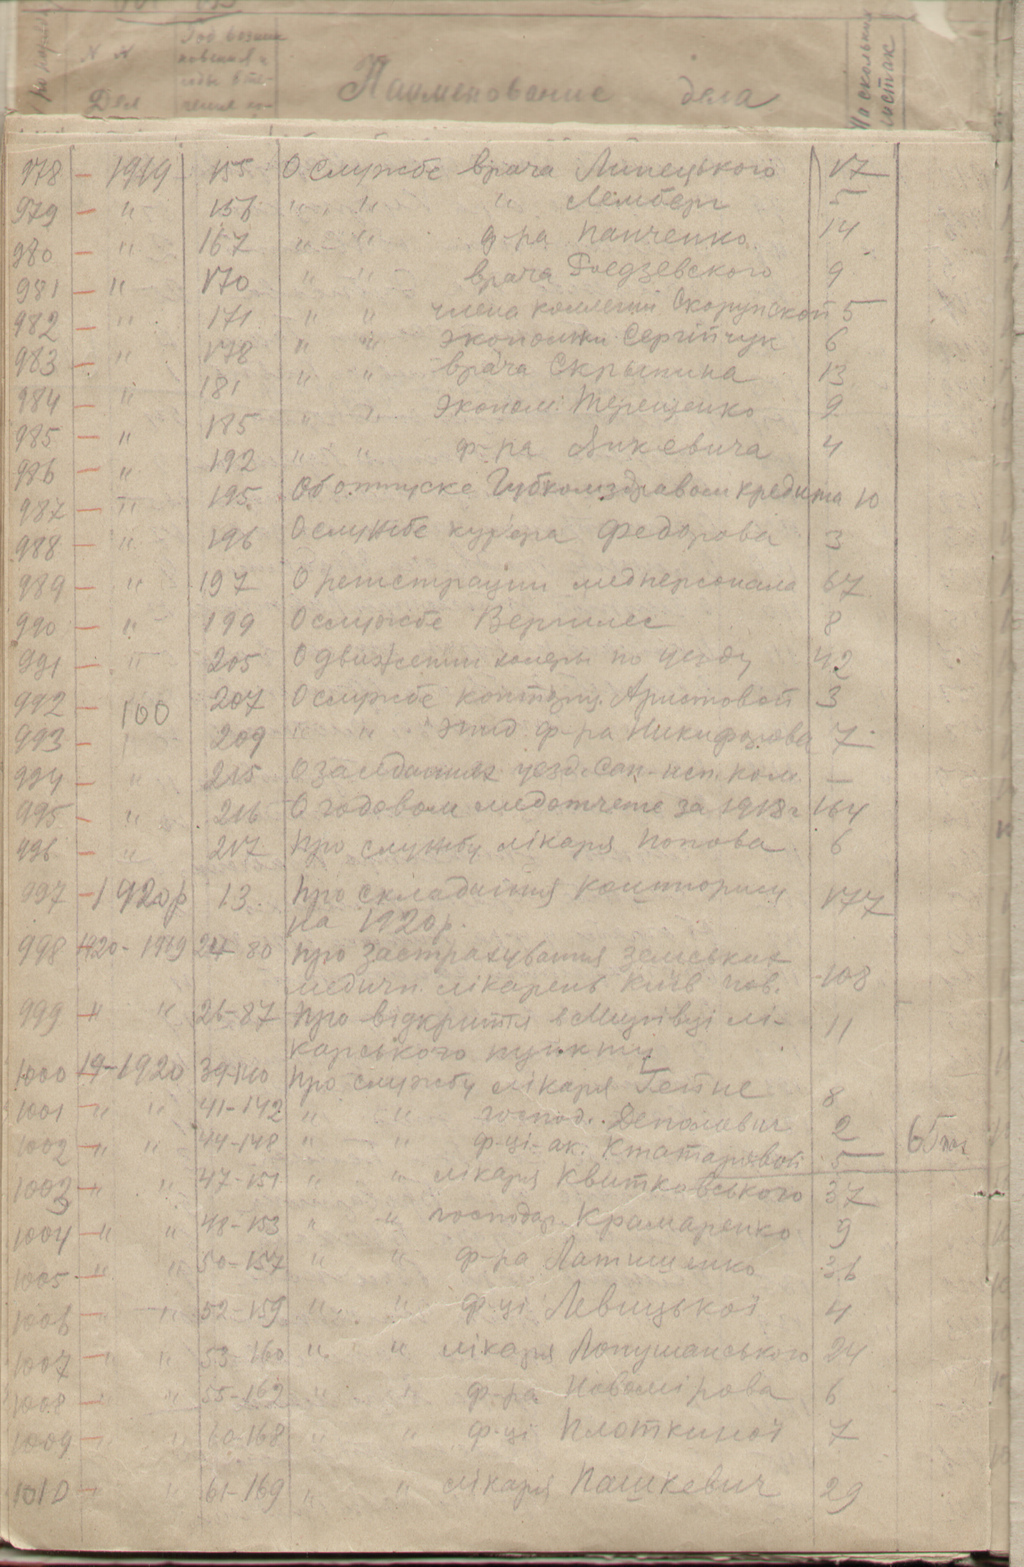 по поряд.
N N
Дел
Год возник
новения и
Наименование дела
На скольких листах
978 - 1919 155 О службе врача Липецького 17
979 - " 156 " " " Лемберг 5
980 - " 167 " " д-ра Панченко 14
981 - " 170 " " врача Гоедзевского 9
982 - " 171 " " члена коллегии Скорупской 5
983 - " 178 " " экономки Сергійчук 6
984 - " 181 " " врача Скрыпина 13
985 - " 185 " " эконом. Терещенко 9
986 - " 192 " " ф-ра Янкевича 4
987 - " 195 Об отпуске Губкомздравом кредита 10
988 - " 196 О службе курьера Федорова 3
989 - " 197 О регистрации медперсонала 67
990 - " 199 О службе Вергилес 8
991 - " 205 О движении холеры по уезду 42
992 - 100 207 О службе конторщ. Аристовой 3
993 - " 209 " " эпид ф-ра Никифорова 7
994 - " 215 О заседаниях уезд. Сан-исп. ком. —
995 - " 216 О годовом медотчете за 1918 г 164
996 - " 217 Про службу лікаря Попова 6
997 - 1920р 13. Про складання кошторису 177
на 1920р.
998 - 1920-1919 24-80 Про застрахування земських
медичн. лікарень Київ губ. 108
999 - " " 26-87 Про відкриття в Мирівці лі- 11
карського пункту
1000 19-1920 39-140 Про службу лікаря Гейне 8
1001 - " " 41-142 " " господ. Деполович 2
1002 - " " 44-148 " " ф-ці-ак. Кнатарьової 5 65 тог
1003 - " " 47-151 " " лікаря Квитковського 37
1004 - " " 48-153 " " господар Крамаренко 9
1005 - " " 50-157 " " ф-ра Латишенко 36
1006 - " " 52-159 " " ф-ці Левицької 4
1007 - " " 53-160 " " лікаря Лопушанського 24
1008 - " " 55-162 " " ф-ра Новомірова 6
1009 - " " 60-168 " " ф-ці Плоткиної 7
1010 - " " 61-169 " " лікаря Пашкевич 29